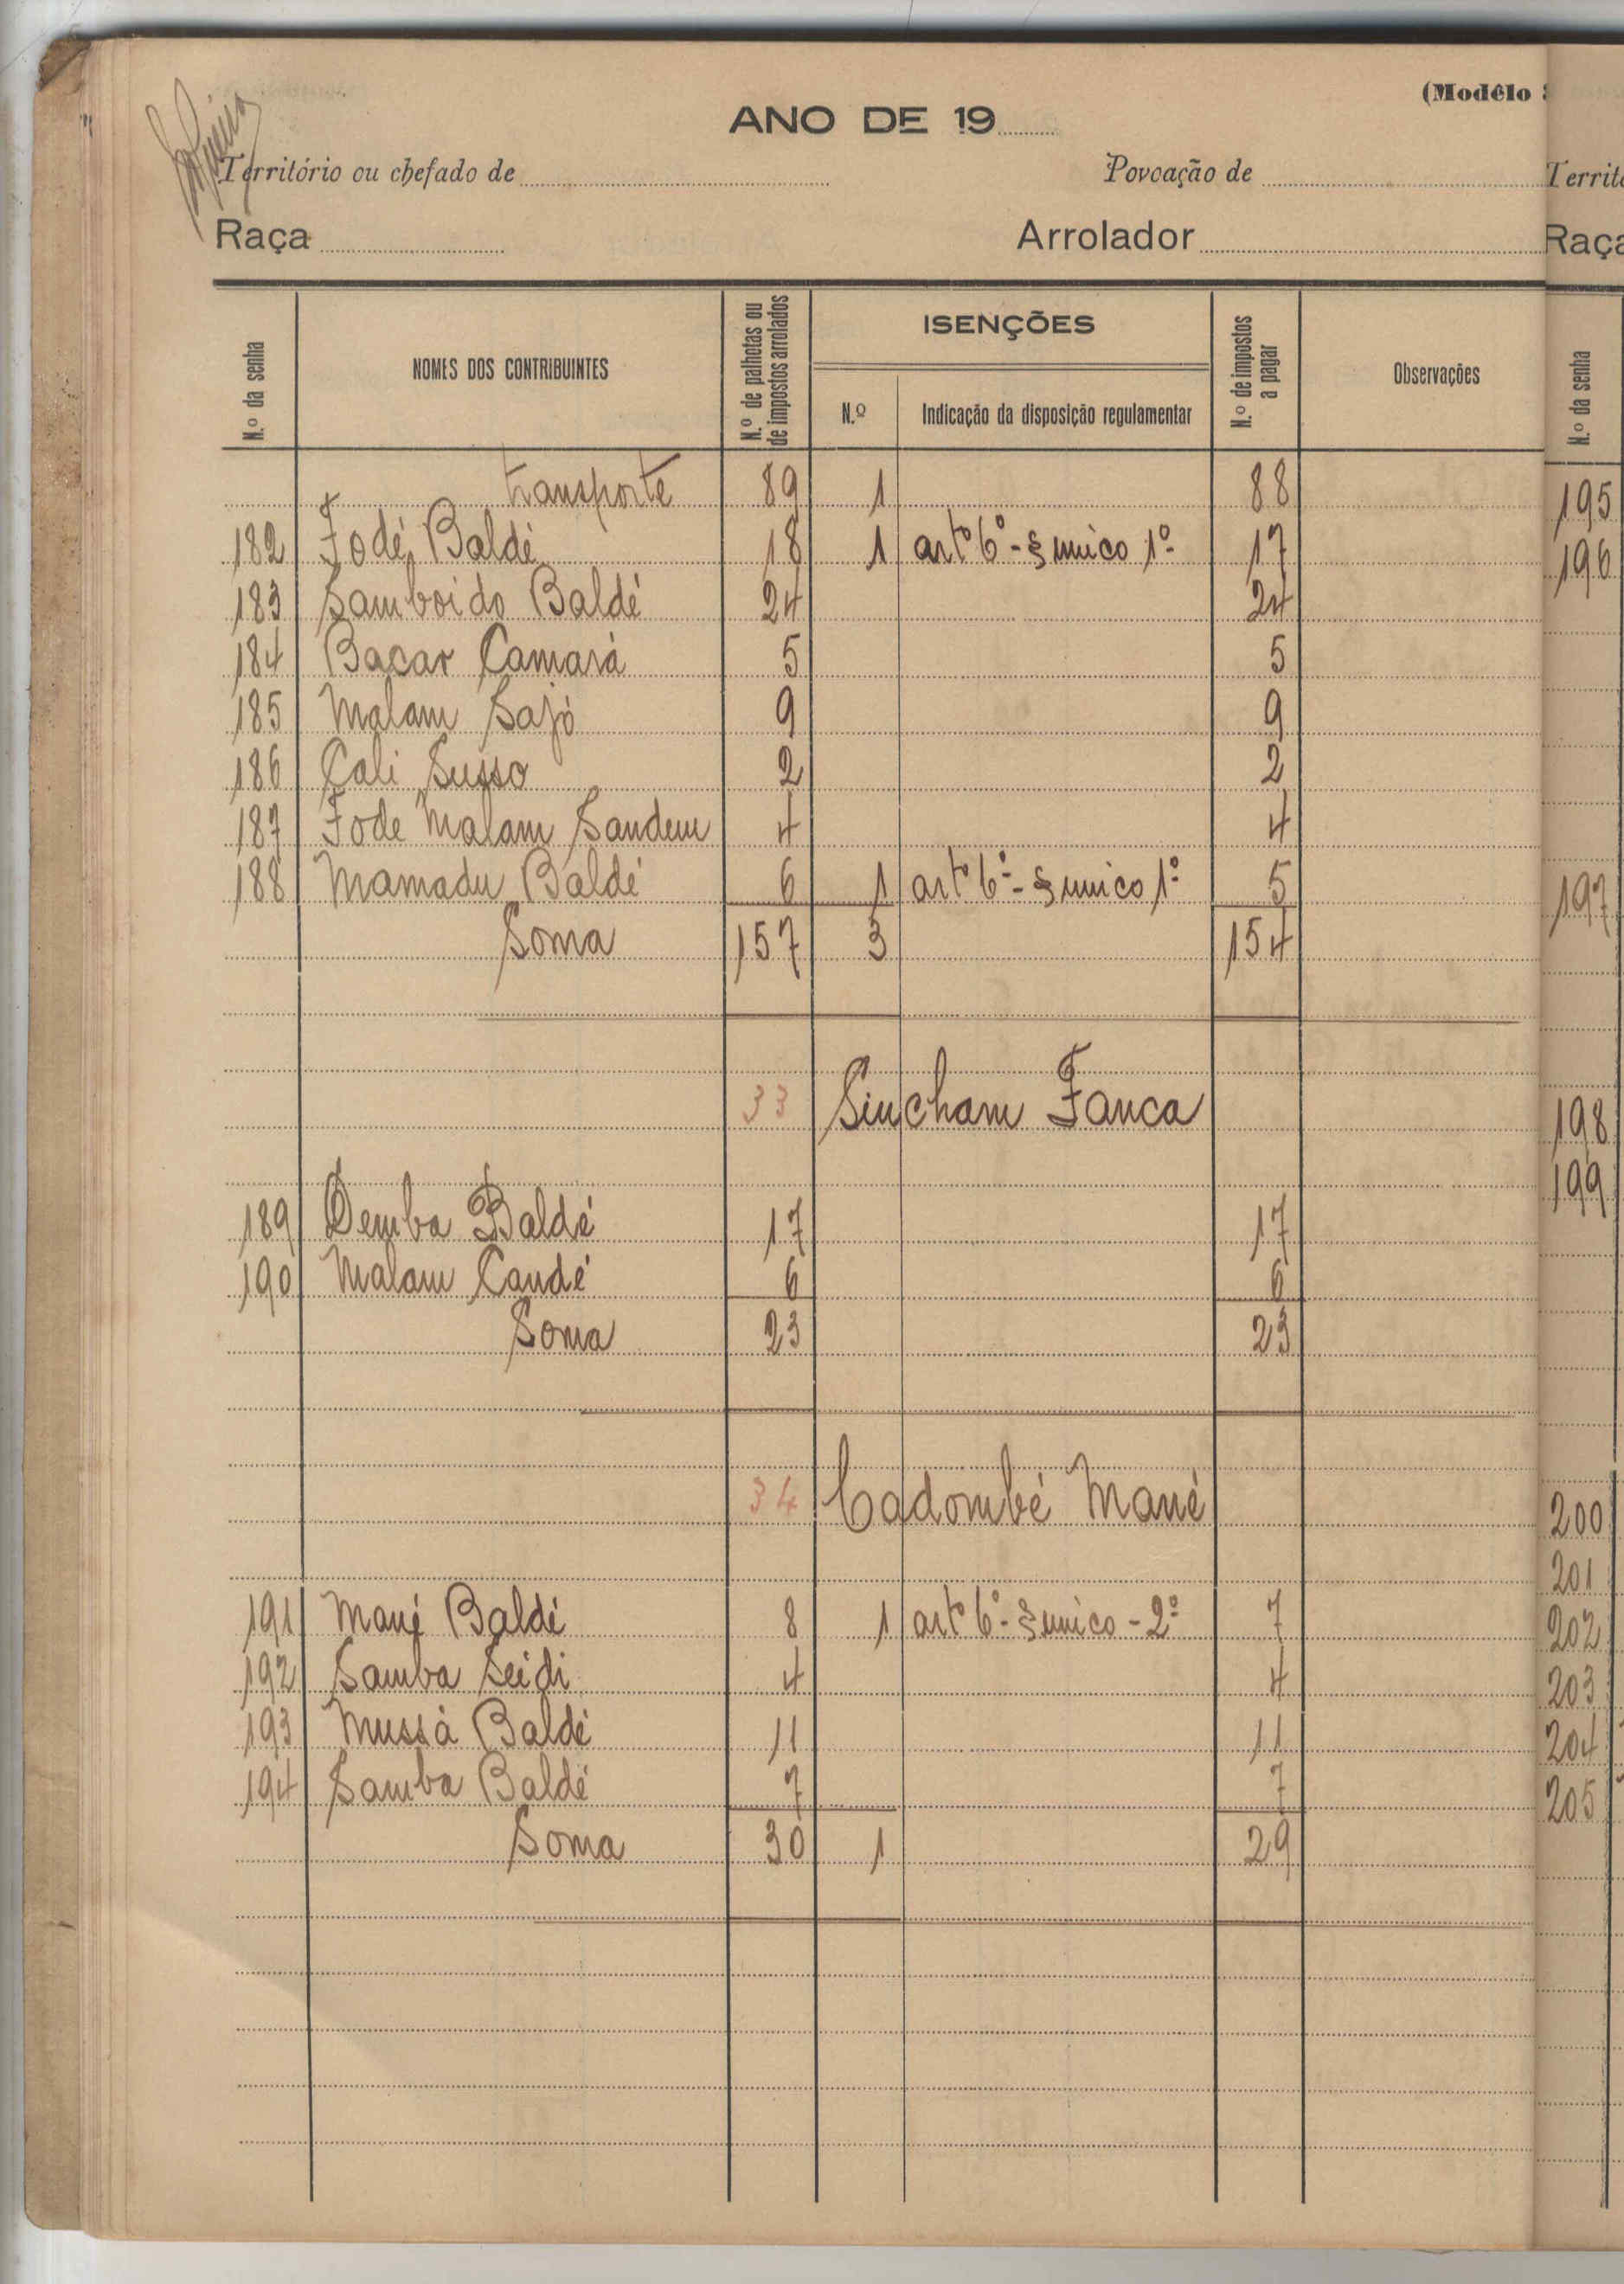 (Modêlo
ANO DE 19
Território ou chefado de Povoação de
Raça Arrolador
N.º da senha NOMES DOS CONTRIBUINTES N.º de palhotas ou de impostos arrolados ISENÇÕES N.º Indicação da disposição regulamentar N.º de impostos a pagar Observações
transporte 89 1 88
182 Fodé Baldé 18 1 artº 6º - § unico 1º 17
183 Samboido Baldé 24 24
184 Bacar Camará 5 5
185 Malam Sajó 9 9
186 Cali Susso 2 2
187 Fode Malam Sandem 4 4
188 Mamadu Baldé 6 1 artº 6º - § unico 1º 5
Soma 157 3 154
33 Sincham Fanca
189 Demba Baldé 17 17
190 Malam Candé 6 6
Soma 23 23
34 Cadombé Mané
191 Mané Baldé 8 1 artº 6º - § unico - 2º 7
192 Samba Seidi 4 4
193 Mussá Baldé 11 11
194 Samba Baldé 7 7
Soma 30 1 29
Territ
Raça
N.º da senha
195
196
197
198
199
200
201
202
203
204
205